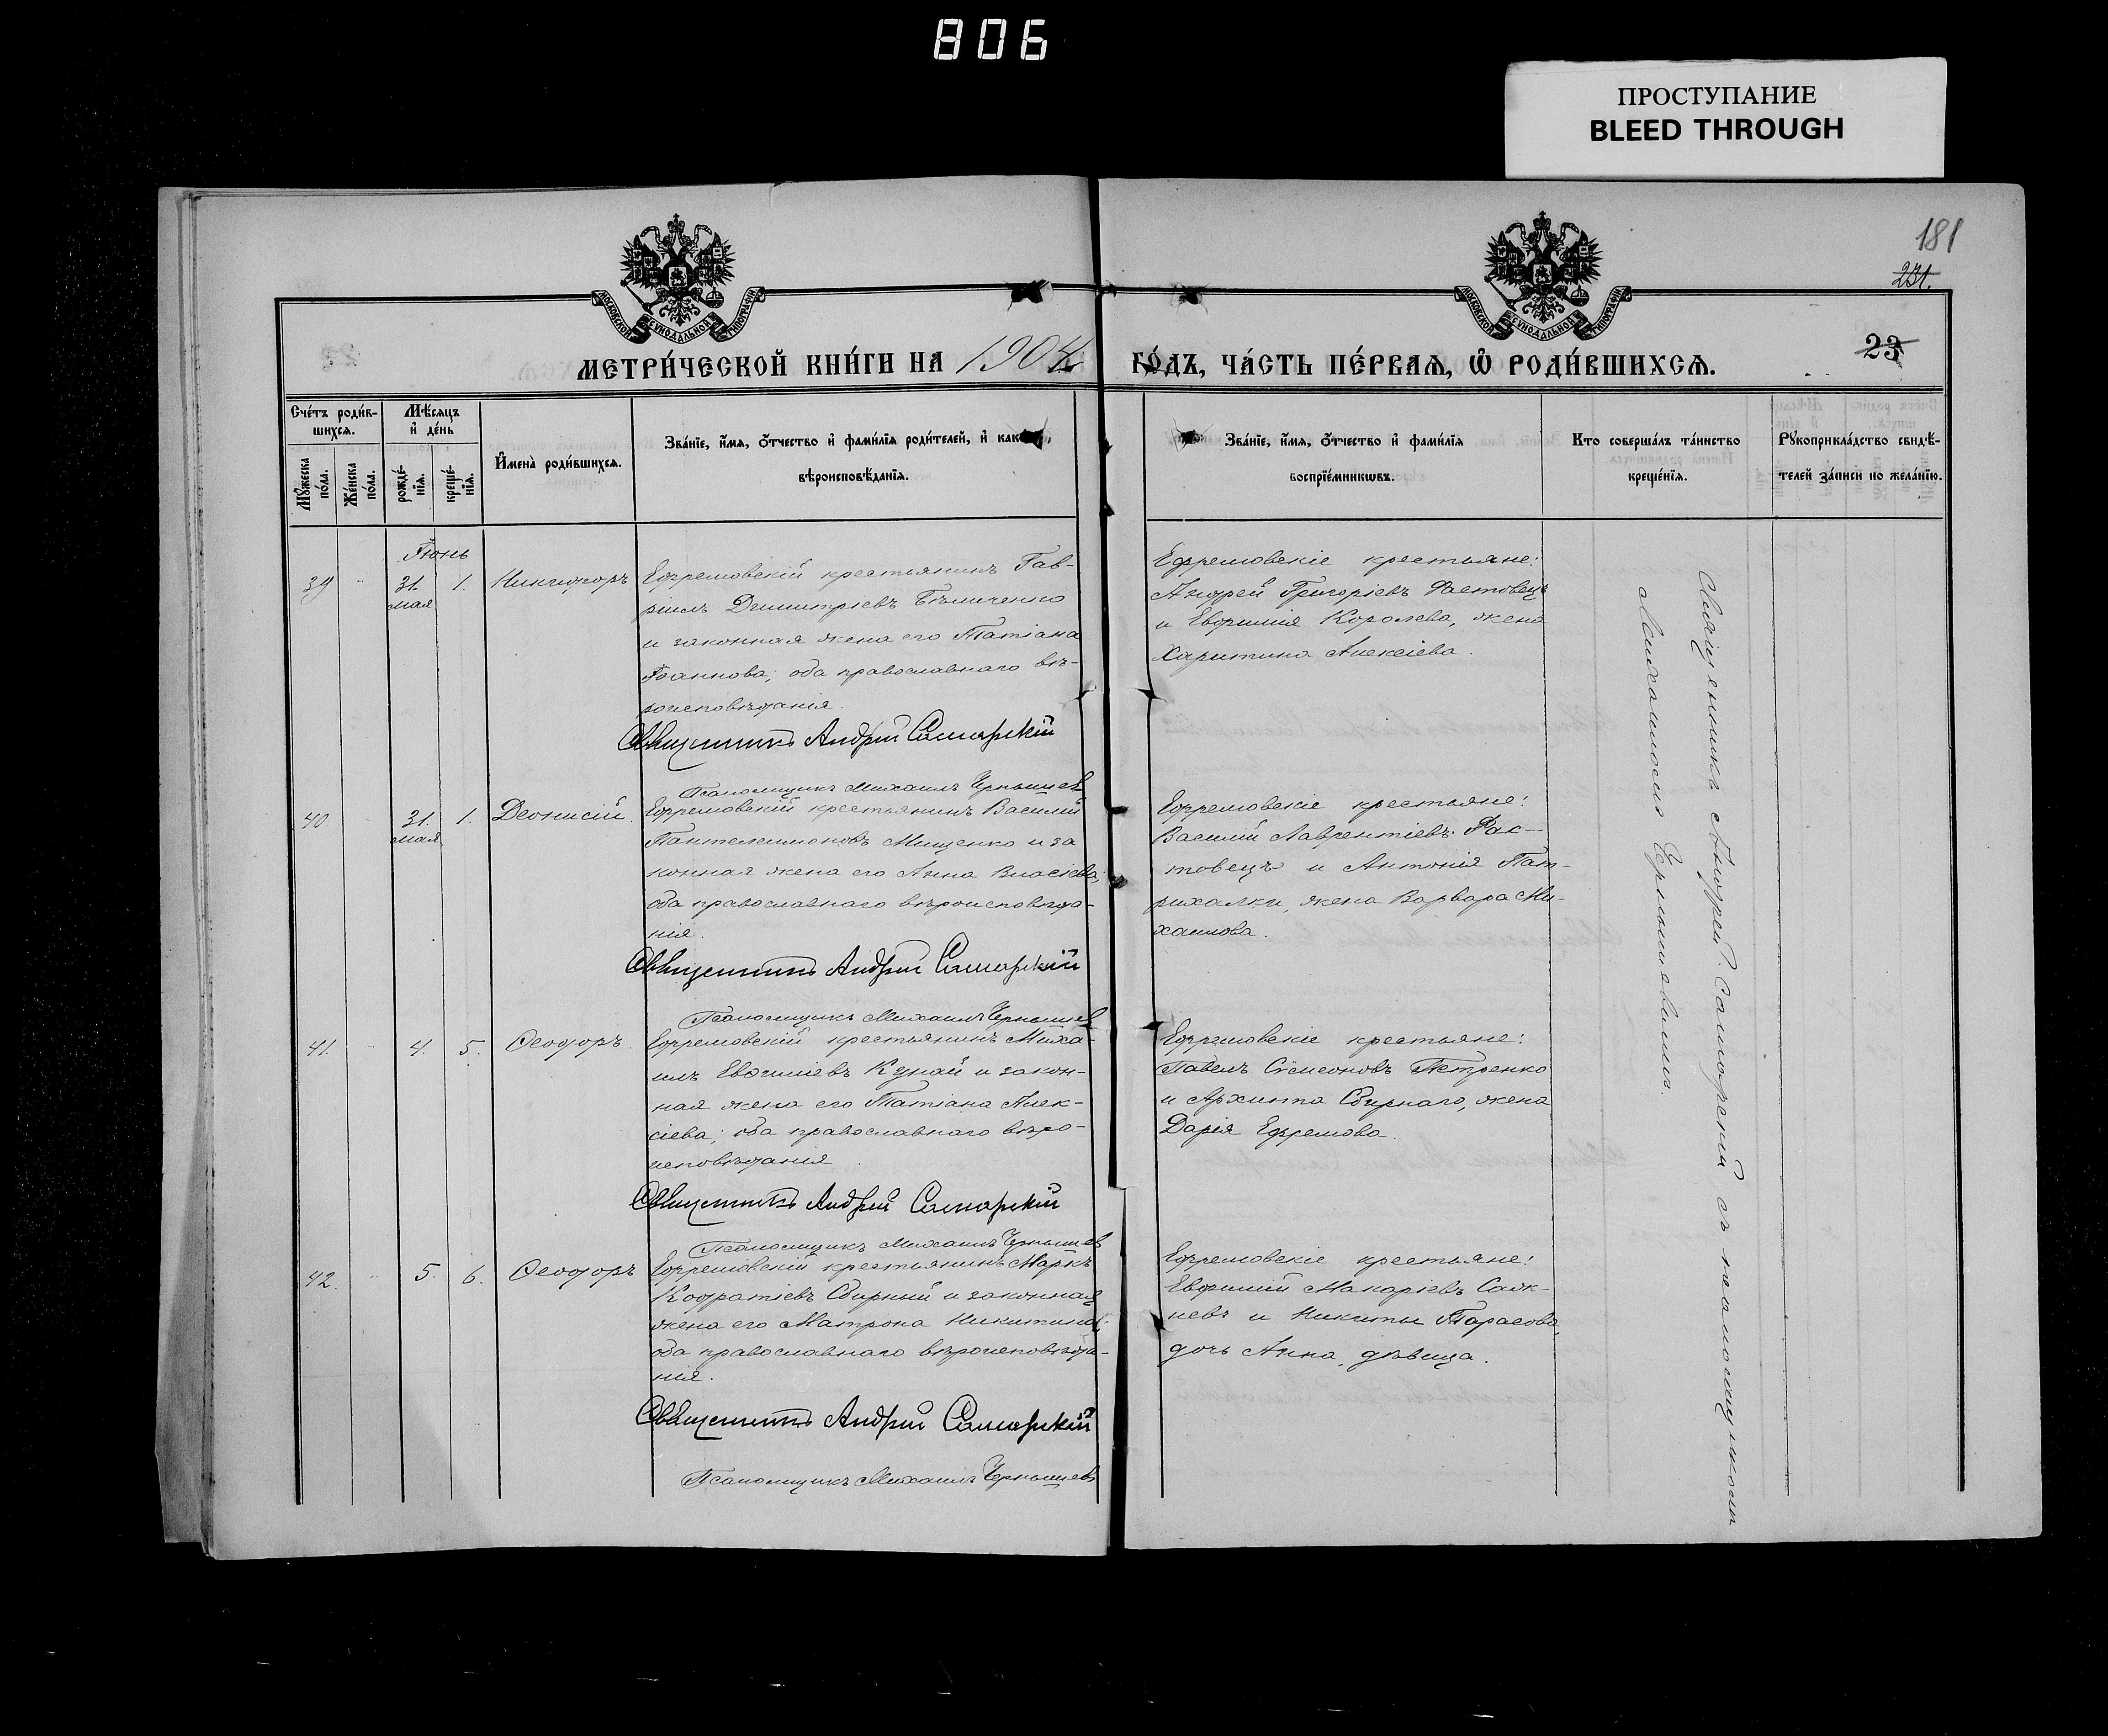 806
ПРОСТУПАНИЕ
BLEED THROUGH
181
231.
23
МОСКОВСКОЙ СѴНОДАЛЬНОЙ ТИПОГРАФІИ
МОСКОВСКОЙ СѴНОДАЛЬНОЙ ТИПОГРАФІИ
МЕТРИ́ЧЕСКОЙ КНИ́ГИ НА 1904
ГО́ДЪ, ЧА́СТЬ ПЕ́РВАЯ, Ѿ РОДИ́ВШИХСЯ.
Сче́тъ роди́в-
шихся.
Мꙋ́жеска по́ла.
Же́нска по́ла.
Мѣ́сяцъ
и҆ де́нь
рожде́-
нїя.
креще́-
нїя.
И҆мена̀ роди́вшихся.
Зва́нїе, и҆́мя, ѻ҆́тчество и҆ фами́лїя роди́телей, и҆ како́гѡ,
вѣроисповѣ́данїя.
Зва́нїе, и҆́мя, ѻ҆́тчество и҆ фами́лїя
воспрїе́мникѡвъ.
Кто соверша́лъ та́инство
креще́нїя.
Рꙋкоприкла́дство свидѣ́-
телей за́писи по жела́нїю.
Іюнь
39 " 31. мая 1. Никифоръ
Ефремовскій крестьянинъ Гав-
риилъ Димитріевъ Бѣличенко
и законная жена его Татіана
Іоаннова; оба православнаго вѣ-
роисповѣданія.
Священникъ Андрей Самарскій
Псаломщикъ Михаилъ Чернышев
Ефремовскіе крестьяне:
Андрей Григоріевъ Фастовецъ
и Евфимія Королева, жена
Харитина Алексіева.
40 31. мая 1. Деонисій.
Ефремовскій крестьянинъ Василій
Пантелеимоновъ Мищенко и за
конная жена его Анна Власіева;
оба православнаго вѣроисповѣда-
нія.
Священникъ Андрей Самарскій
Псаломщикъ Михаилъ Чернышев
Ефремовскіе крестьяне:
Василій Лаврентіевъ Фас-
товецъ и Антонія Пат-
рихалки, жена Варвара Ми-
хаилова.
41. " 4. 5. Ѳеодоръ
Ефремовскій крестьянинъ Миха-
илъ Евфиміевъ Кунай и закон-
ная жена его Татіана Алек-
сіева; оба православнаго вѣро-
исповѣданія.
Священникъ Андрей Самарскій
Псаломщикъ Михаилъ Чернышев
Ефремовскіе крестьяне:
Павелъ Сѵмеоновъ Петренко
и Архипа Сбирнаго, жена
Дарія Ефремова.
42. " 5. 6. Ѳеодоръ
Ефремовскій крестьянинъ Маркъ
Кодратіевъ Сбирный и законная
жена его Матрона Никитина;
оба православнаго вѣроисповѣда-
нія.
Священникъ Андрей Самарскій
Псаломщикъ Михаилъ Чернышев
Ефремовскіе крестьяне:
Евфимій Макаріевъ Саж-
невъ и Никиты Тарасова,
дочь Анна, дѣвица.
Священникъ Андрей Самарскій съ псаломщикомъ
Михаиломъ Чернышевымъ.